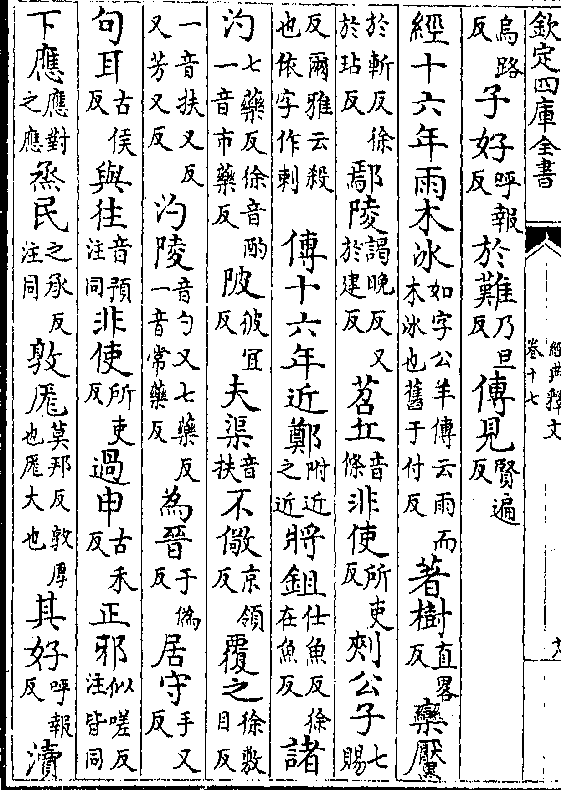 欽定四庫全書
經典釋文
卷十七
烏路反子好呼報反於難乃旦反傳見賢遍反
經十六年雨木冰如字公羊傳云雨而木冰也舊于付反著樹直畧反欒黶
於斬反徐於玷反鄢陵謁晚反又於建反苕丘音條非使所吏反刺公子七賜
反爾雅云殺也依字作刺傳十六年近鄭附近之近將鉏仕魚反徐在魚反諸
汋七藥反徐音酌一音市藥反陂彼冝反夫渠音扶不儆京領反覆之徐敷目反
一音扶又反又芳又反汋陵音勺又七藥反一音常藥反為晉于偽反居守手又反
句耳古侯反與往音預注同非使所吏反過申古禾反正邪似嗟反注皆同
下應應對之應烝民之承反注同敦厖莫邦反敦厚也厖大也其好呼報反瀆